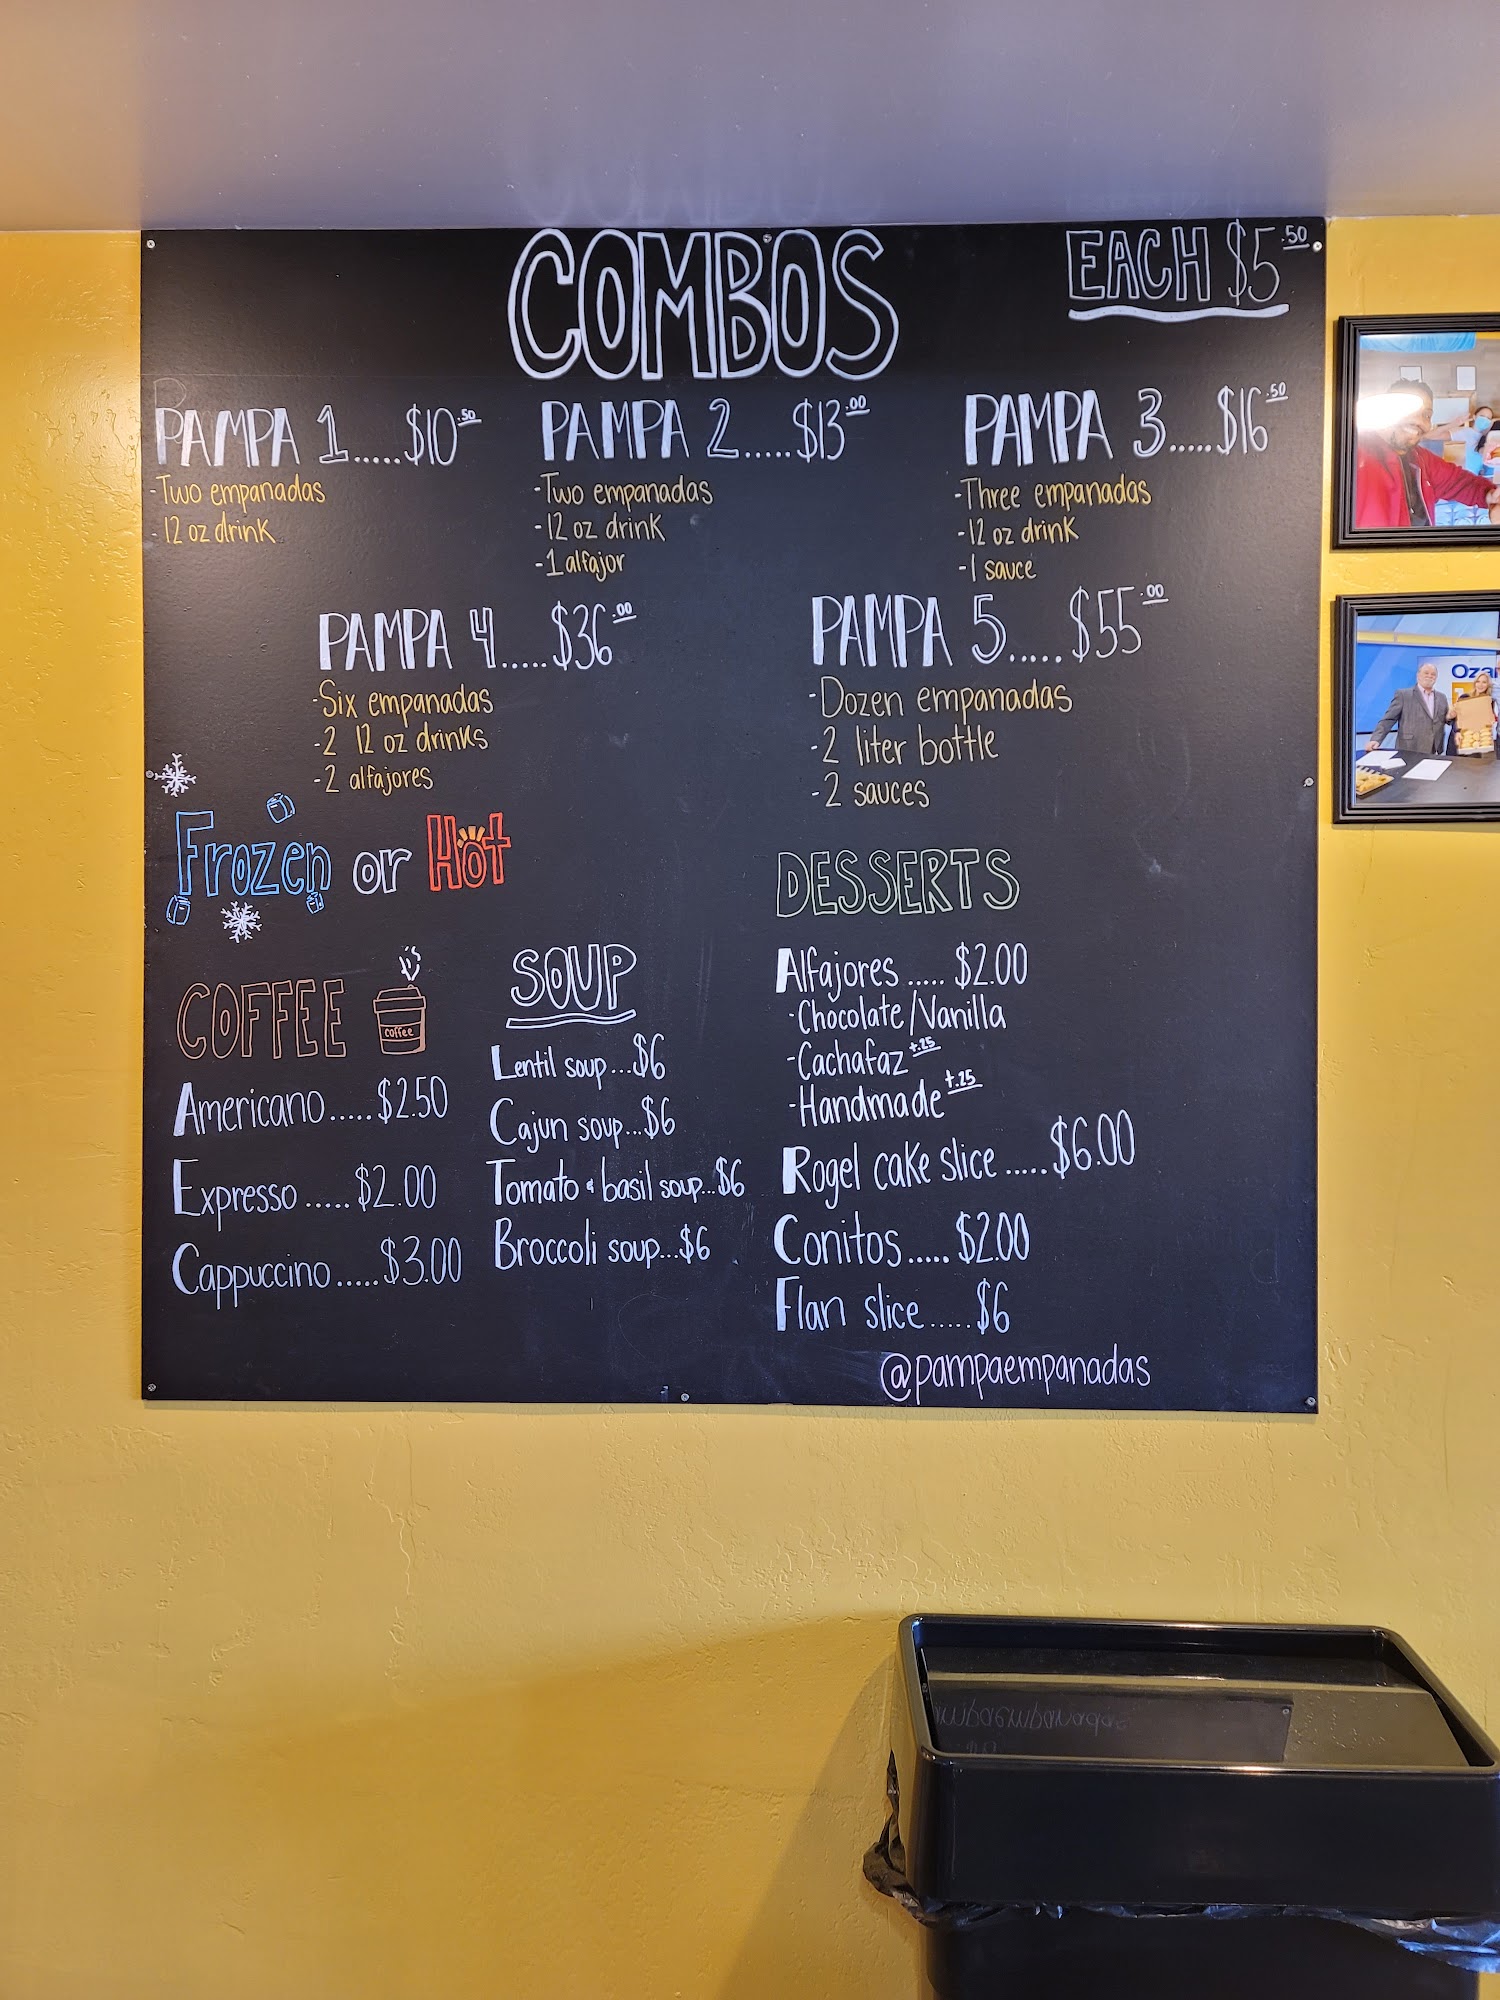 COMBOS
EACH $5.50
PAMPA 1.....$10.50
-Two empanadas
-12 oz drink
PAMPA 2.....$13.00
-Two empanadas
-12 oz drink
-1 alfajor
PAMPA 3.....$16.50
-Three empanadas
-12 oz drink
-1 sauce
PAMPA 4.....$36.00
-Six empanadas
-2 12 oz drinks
-2 alfajores
PAMPA 5.....$55.00
-Dozen empanadas
-2 liter bottle
-2 sauces
Frozen or Hot
COFFEE
coffee
Americano.....$2.50
Expresso.....$2.00
Cappuccino.....$3.00
SOUP
Lentil soup...$6
Cajun soup...$6
Tomato & basil soup...$6
Broccoli soup...$6
DESSERTS
Alfajores.....$2.00
-Chocolate/Vanilla
-Cachafaz +.25
-Handmade +.25
Rogel cake slice.....$6.00
Conitos.....$2.00
Flan slice.....$6
@pampaempanadas